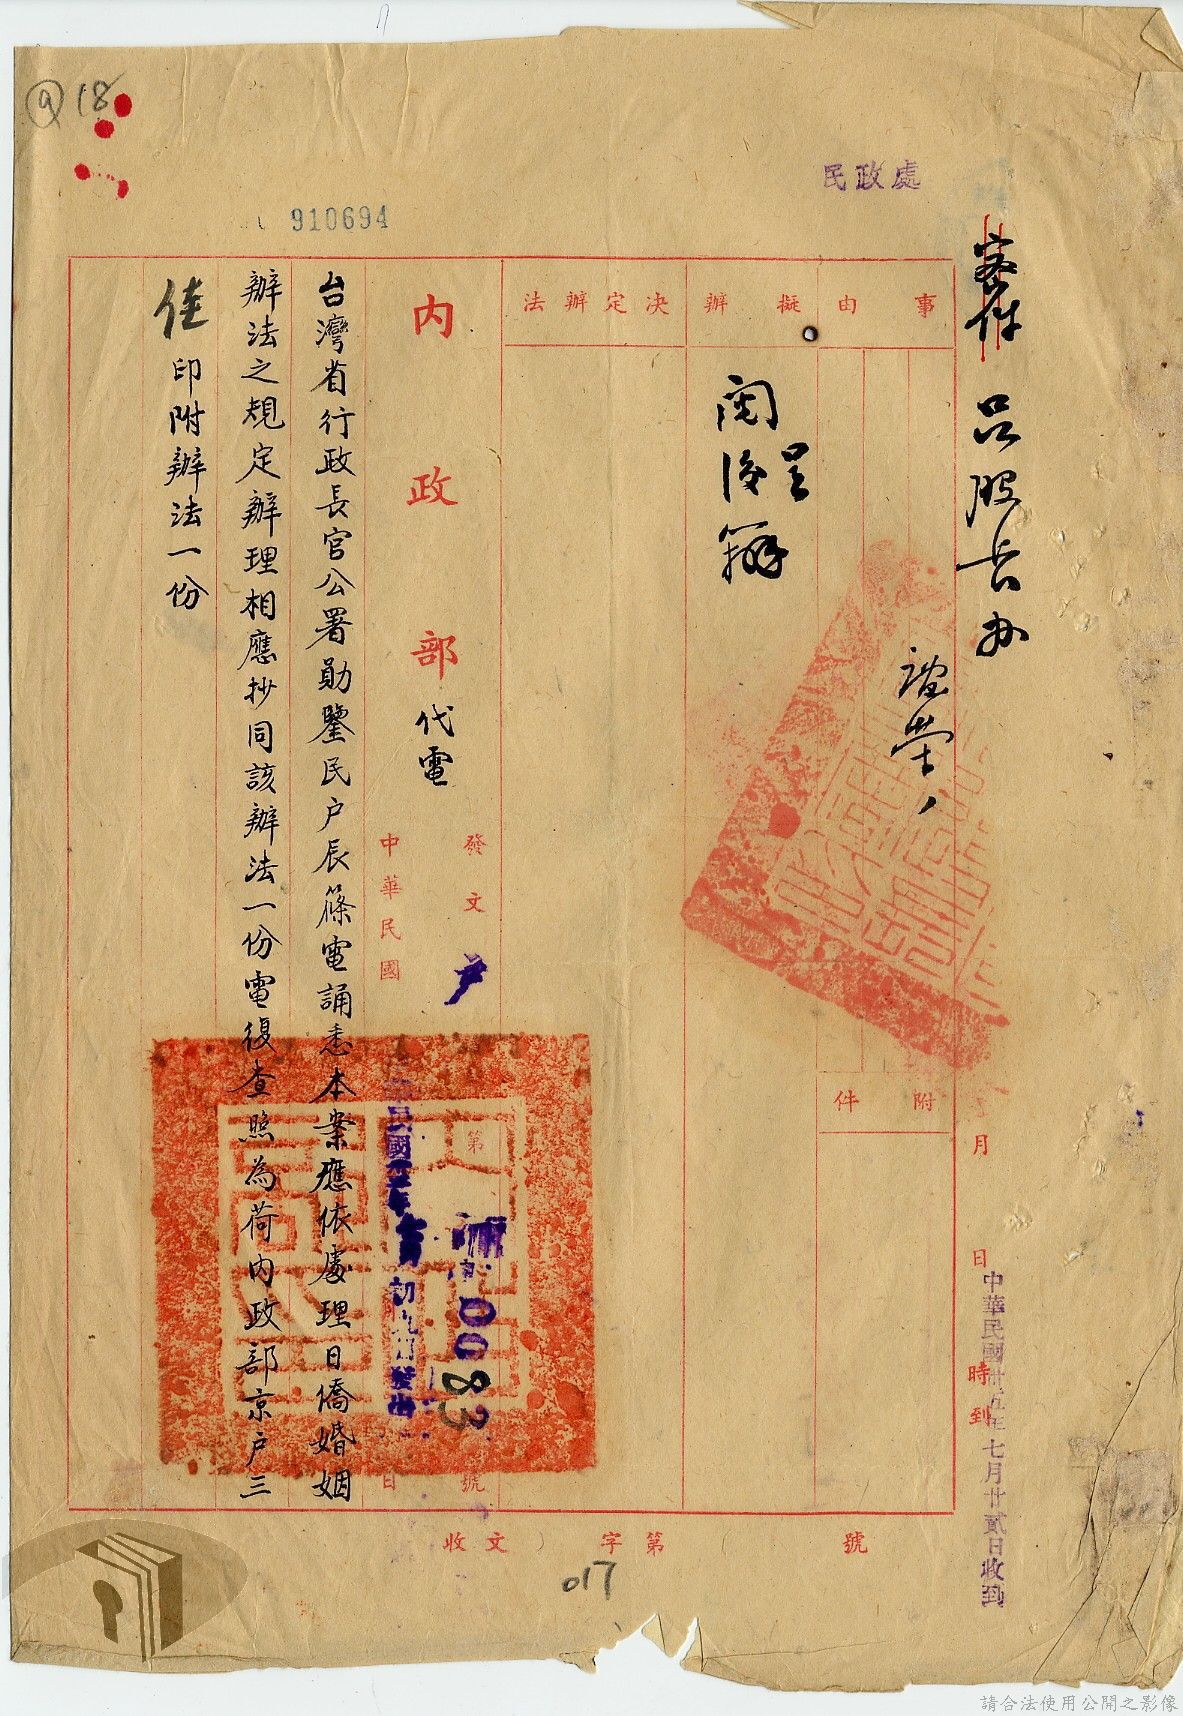 18
910694
民政處
密件
呂股長办
事由
擬辦
決定辦法
附件
閱後呈
辦
內政部代電
發文
中華民國
台灣省行政長官公署勛鑒民户辰篠電誦悉本案應依處理日僑婚姻
辦法之規定辦理相應抄同該辦法一份電復查照為荷內政部京户三
佳印附辦法一份
第
0083
號
日
月
日
時到
中華民國卅五年七月廿貳日收到
收文 字第 號
017
請合法使用公開之影像